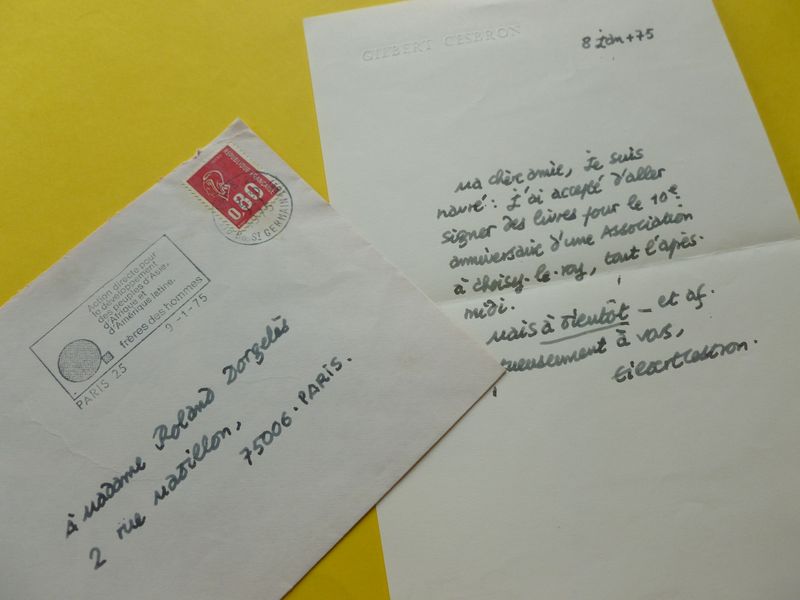 GILBERT CESBRON
8 Jan + 75
Ma chère amie, Je suis
navré : J'ai accepté d'aller
signer des livres pour le 10e
anniversaire d'une Association
à Choisy-le-roy, tout l'après-
midi.
Mais à bientôt – et af-
tueusement à vous,
GilbertCesbron.
REPUBLIQUE FRANÇAISE
0.80
ST GERMAIN
Action directe pour
le développement
des peuples d'Asie,
d'Afrique et
d'Amérique latine.
frères des hommes
PARIS 25 9-1-75
À Madame Roland Dorgelès
2 rue Mabillon,
75006. PARIS.